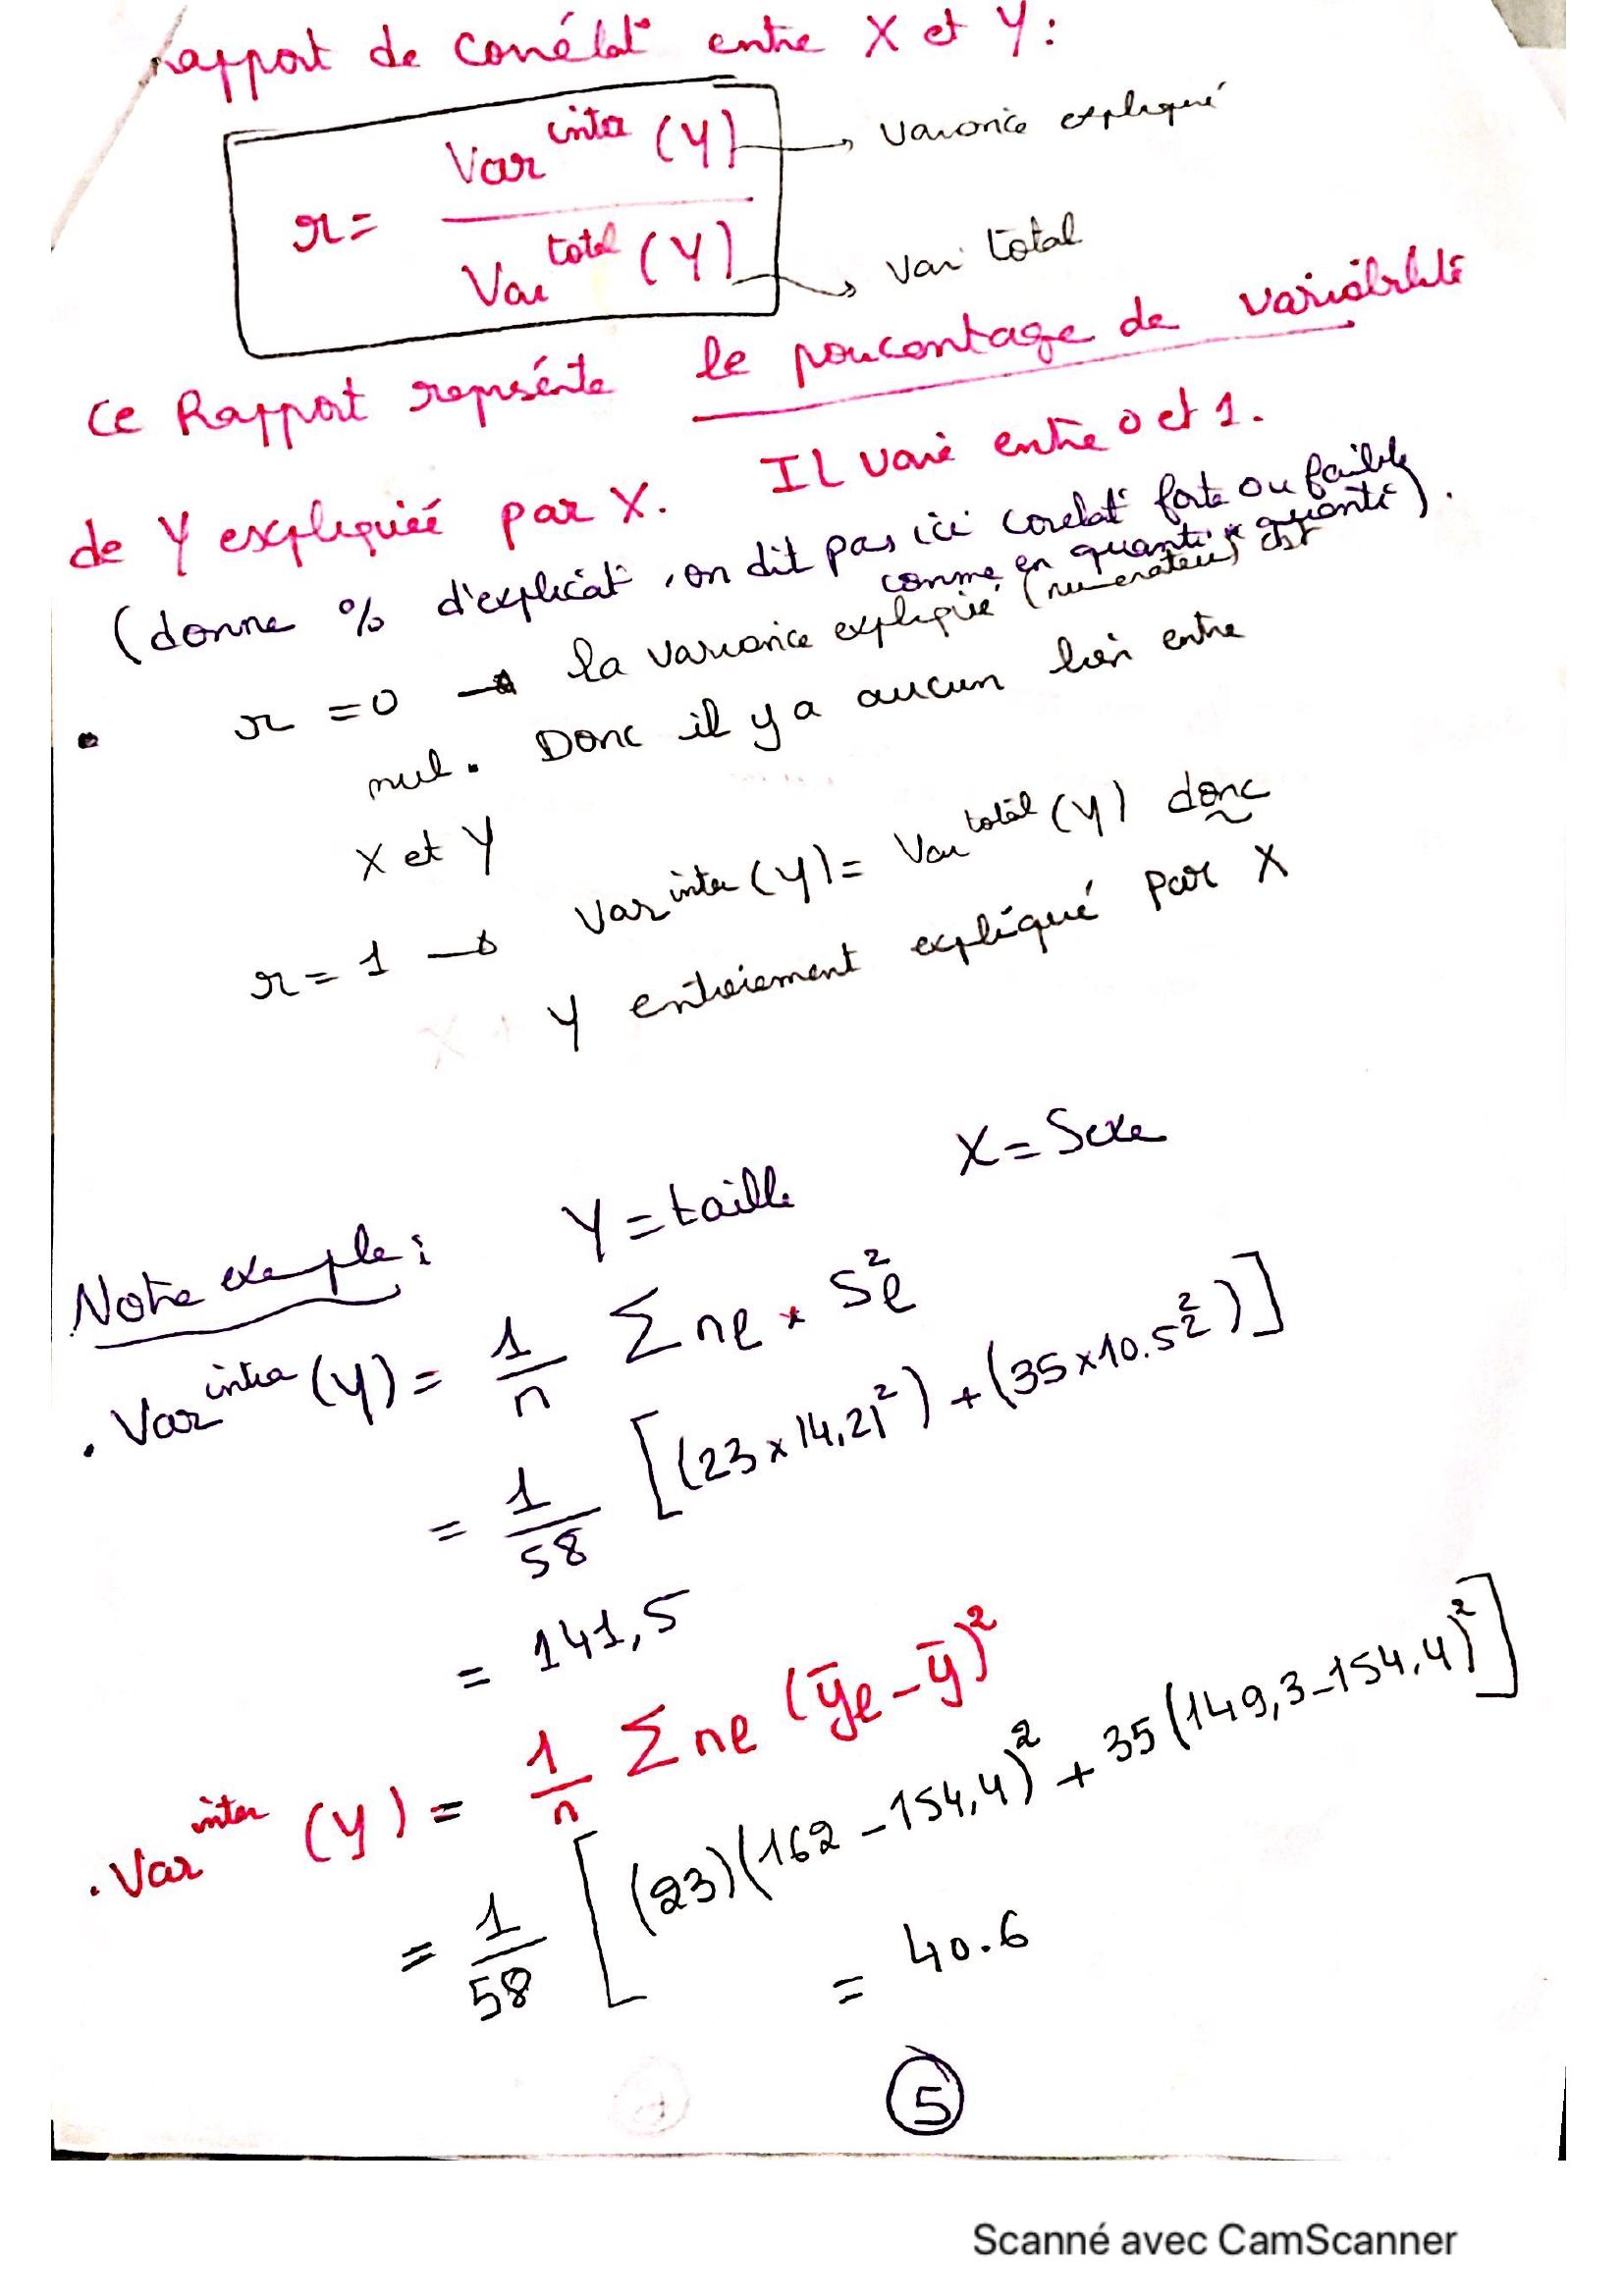 Rapport de Corrélat° entre X et Y :
r = Var^inter (Y) / Var^total (Y)
→ Variance expliqué
→ Var total
Ce Rapport représente le pourcentage de variabilité
de Y expliquée par X. Il varie entre 0 et 1.
(donne % d'explicat°, on dit pas ici corelat° forte ou faible
comme en quanti * quanti).
• r = 0 → la variance expliqué (numerateur) est
nul. Donc il y a aucun lien entre
X et Y
r = 1 → Var^inter (Y) = Var^total (Y) donc
Y entièrement expliqué par X
Notre exemple : Y = taille X = Sexe
. Var^intra (Y) = 1/n Σ nℓ * S²ℓ
= 1/58 [(23 x 14,21²) + (35 x 10.52²)]
= 141,5
. Var^inter (Y) = 1/n Σ nℓ (ȳℓ - ȳ)²
= 1/58 [(23)(162 - 154,4)² + 35(149,3 - 154,4)²]
= 40.6
5
Scanné avec CamScanner